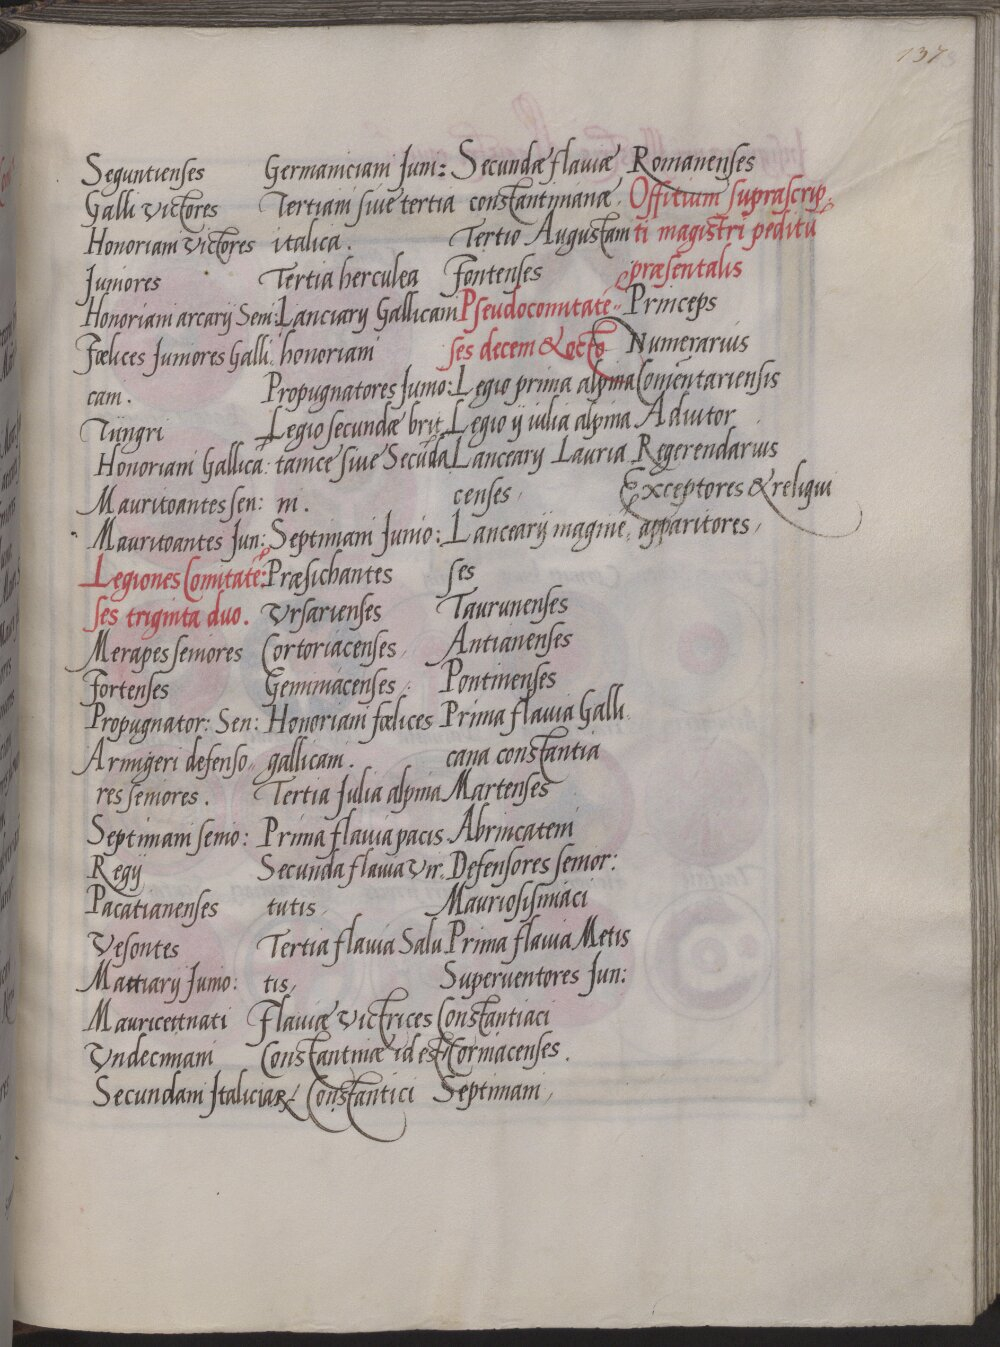 137
Seguntienses
Galli victores
Honoriani victores
Juniores
Honoriani arcarij Sem:
Fœlices Juniores Galli
cam.
Tungri
Honoriani Gallica:
Mauritoantes sen:
Mauritoantes Jun:
Legiones Comitatē:
ses triginta duo.
Merapes seniores
Fortenses
Propugnator: Sen:
Armigeri defenso,,
res seniores.
Septimani senio:
Regij
Pacatianenses
Vesontes
Mattiarij Junio:
Mauricettnati
Vndecimani
Secundani Italiciani
Germaniciani Juni:
Tertiani siue tertia
italica.
Tertia herculea
Lanciarij Gallicani
honoriani
Propugnatores Junio:
Legio secundæ brit
tanice siue Secūda
ni.
Septimani Junio:
Præsichantes
Vrsarienses
Cortoriacenses
Geminiacenses
Honoriani fœlices
gallicani.
Tertia Julia alpina
Prima flauia pacis
Secunda flauia Vir
tutis
Tertia flauia Salu
tis,
Flauiæ victrices
Constantinæ id est
Constantici
Secundæ flauiæ
constantinianæ
Tertio Augustam
Fontenses
Pseudocomitatē,,
ses decem & octo
Legio prima alpina
Legio ij iulia alpina
Lancearij Lauria
censes
Lancearij maginē,,
ses
Taurunenses
Antianenses
Pontinenses
Prima flauia Galli
cana constantia
Martenses
Abrincateni
Defensores senior:
Mauriosismiaci
Prima flauia Metis
Superuentores Jun:
Constantiaci
Cormacenses.
Septimani,
Romanenses
Offitium suprascrip,,
ti magistri peditū
præsentalis
Princeps
Numerarius
Comentariensis
Adiutor
Regerendarius
Exceptores & religui
apparitores,